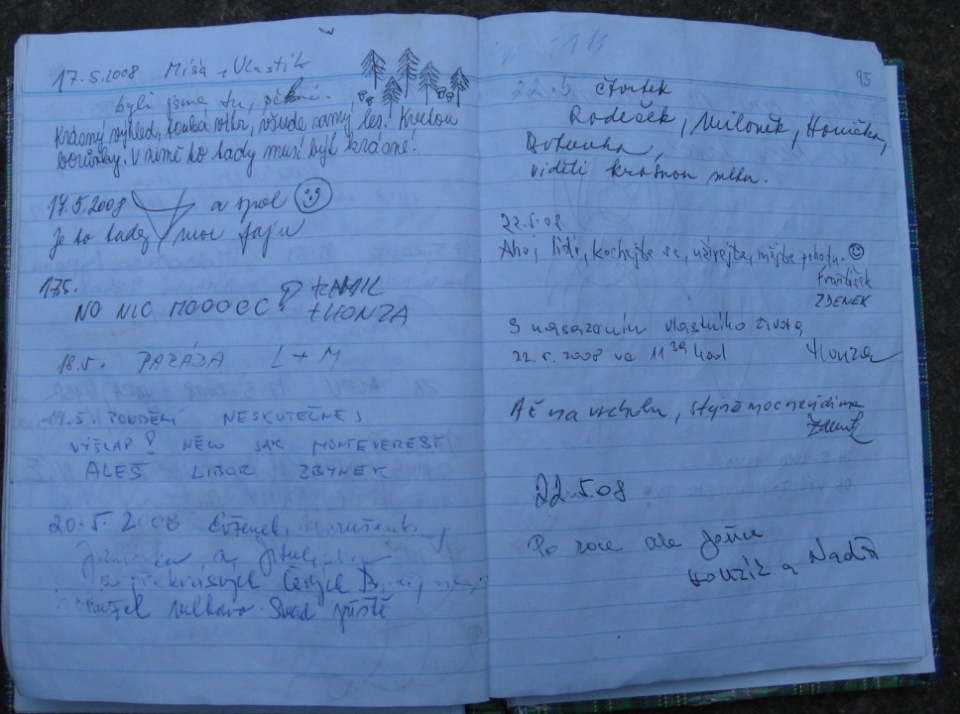 17.5.2008 Míša + Vlastík
byli jsme tu, pěkně.
Krásný výhled, fouká větr, všude samý les! Kvetou
borůvky. V zimě to tady musí být krásné!
17.5.2008 a spol
je to tady moc fajn
17.5.
NO NIC MOOOOC +KAMIL
+HONZA
18.5. PARÁDA L + M
19.5. PONDĚLÍ NESKUTEČNEJ
VÝŠLAP! NĚCO JAK MONTEVEREST
ALEŠ LIBOR ZBYNĚK
20.5.2008 Evženek,
a
Českých
Snad příště
95
22.5. čtvrtek
Radeček, Miloněk,
viděli krásnou mlhu.
22.5.08
Ahoj lidi, kochejte se, užívejte, mějte pohodu.
František
ZDENEK
S nasazením vlastního života
22.5.2008 ve 11 39 hod Honza
Až na vrcholu, stejně moc nevidíme
Zdeněk
22.5.08
Po roce ale
Honzík a Naďa